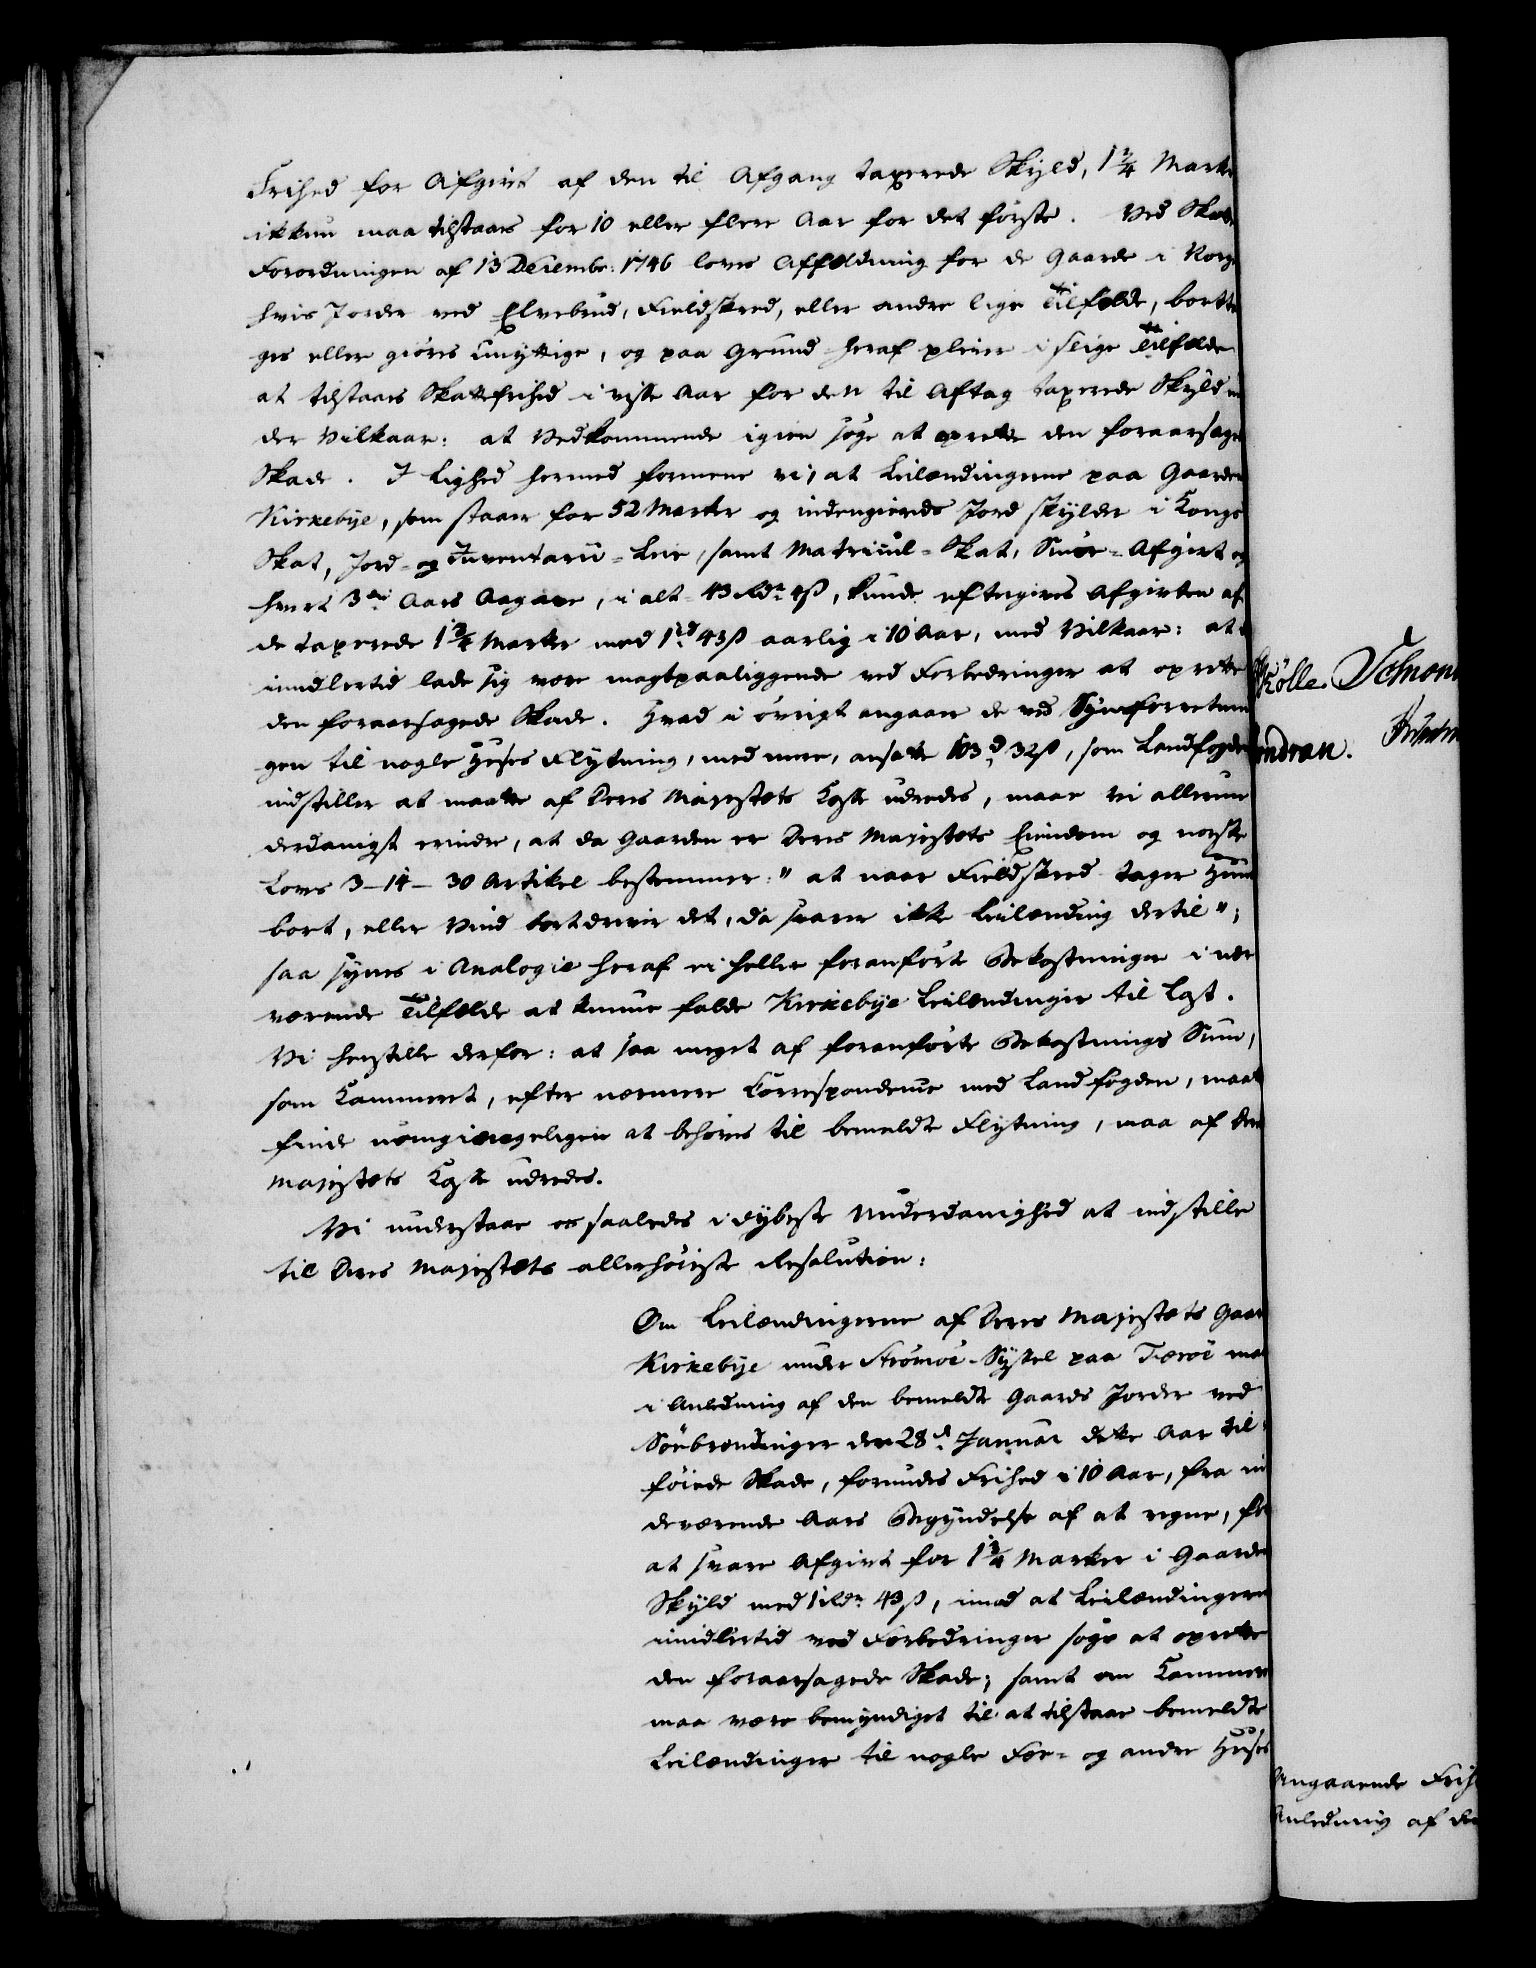 Frihed for Afgivt af den til Afgang taxerede Skyld, 1 3/4 Marker
ikkun maa tilstaaes for 10 eller flere Aar for det förste. Ved Skatte
Forordningen af 13 Decembr: 1746 loves Affældning for de Gaarde i Norge
hvis Jorder ved Elvebrud, Fieldskred, eller andre lige Tilfælde, bortta
ges eller giöres unyttige, og paa Grund heraf pleier i slige Tilfælde
at tilstaaes Skattefrihed i visse Aar for den til Aftag taxerede Skyld un
der Vilkaar: at Vedkommende igien söge at oprette den foraarsagede
Skade. I Lighed hermed formene vi, at Leilændingerne paa Gaarden
Kirkebye, som staaer for 52 Marker og indengierds Jord skylder i Konge
Skat, Jord- og Inventarii-Leie, samt Matricul-Skat, Smör-Afgivt og
hvert 3die Aars Aagave, i alt 43 Rdr 4ß, kunde eftergives Afgivten af
de taxerede 1 3/4 Marker med 1rd 43ß aarlig i 10 Aar, med Vilkaar: at de
imidlertid lade sig være magtpaaliggende ved Forbedringer at oprette
den foraarsagede Skade. Hvad i övrigt angaaer de ved Synsforretnin
gen til nogle Huses Flytning, med mere, ansatte 103rd 32ß, som Landfogden
indstiller at maatte af Deres Majestæts Casse udredes, maae vi allerun
derdanigst erindre, at da Gaarden er Deres Majestæts Eiendom og norske
Lovs 3-14-30 Artikel bestemmer: "at naar Fieldskred tager Huus
bort, eller Vind bortdriver det, da svarer ikke Leilænding dertil";
saa synes i Analogie heraf ei heller foranförte Bekostninger i nær
værende Tilfælde at kunne falde Kirkebye Leilændinger til Last.
Vi henstille derfor: at saa meget af foranförte Bekostnings Sum,
som Kammeret, efter nærmere Correspondence med Landfogden, maatte
finde uomgiængeligen at behöves til bemeldte Flytning, maa af Deres
Majestæts Casse udredes.
Vi understaae os saaledes i dybeste Underdanighed at indstille
til Deres Majestæts allerhöieste Resolution:
Om Leilændingerne af Deres Majestæts Gaard
Kirkebye under Strömöe-Syssel paa Færöe maa
i Anledning af den bemeldte Gaards Jorder ved
Söebrændinger den 28de Januar dette Aar til-
föiede Skade, forundes Frihed i 10 Aar, fra in
deværende Aars Begyndelse af at regne, for
at svare Afgivt for 1 3/4 Marker i Gaardens
Skyld med 1 Rdr 43ß, imod at Leilændingerne
imidlertid ved Forbedringer söge at oprette
den foraarsagede Skade; samt om Kammeret
maa være bemyndiget til at tilstaae bemeldte
Leilændinger til nogle Fæe- og andre Huses
Angaaende Frih
Anledning af de